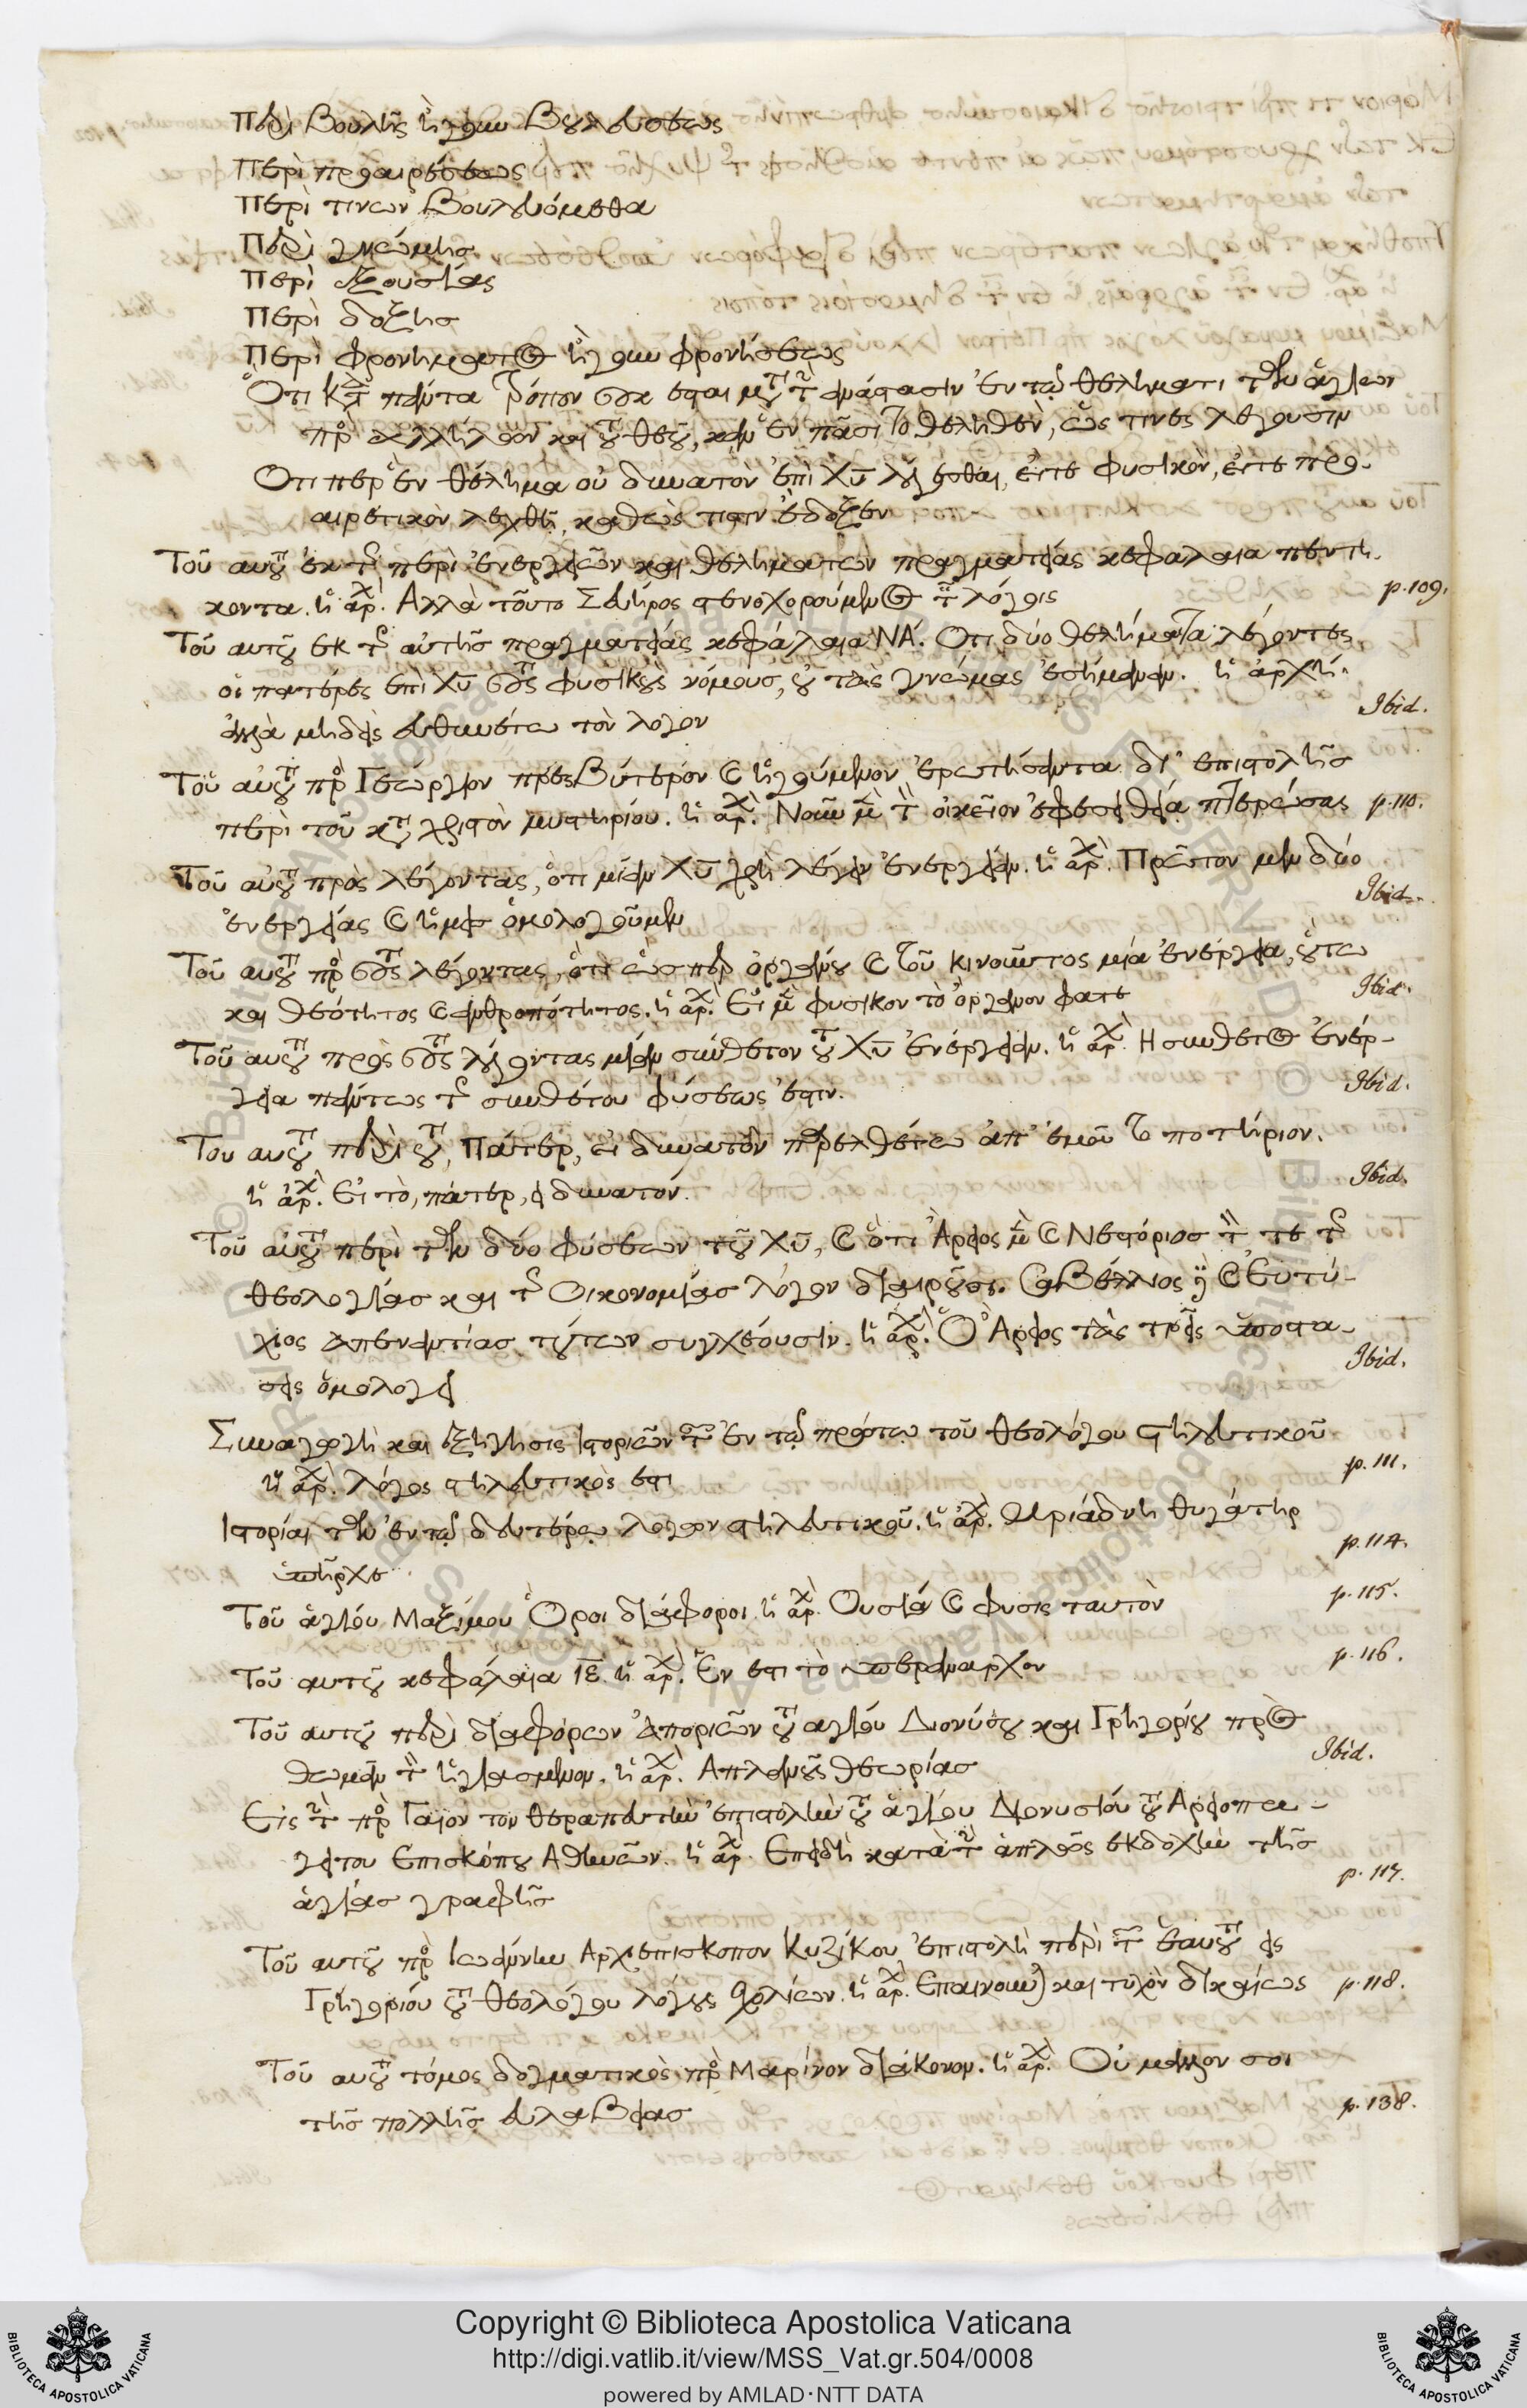 Περὶ Βουλῆς ἤγουν Βουλεύσεως
Περὶ προαιρέσεως
Περὶ τινων Βουλευόμεθα
Περὶ γνώμησ
Περὶ ἐξουσίας
Περὶ δόξησ
Περὶ φρονήματος ἤγουν φρονήσεως
Ὅτι κατὰ πάντα τρόπον οὐκ ἔσται μετὰ τὴν ἀνάστασιν ἓν τῷ θελήματι τῶν ἁγίων
πρὸ ἀλλήλων καὶ τοῦ θεοῦ, κἂν ἓν πᾶσι τὸ θεληθὲν, ὥς τινες λέγουσιν
Οτι περ ἓν θέλημα οὐ δυνατὸν ἐπὶ Χυ λέγεσθαι, εἴτε φυσικὸν, εἴτε προ-
αιρετικὸν λεχθῇ, καθώς τισιν ἔδοξεν
Τοῦ αυτοῦ ἐκ τῆς περὶ ἐνεργειῶν καὶ θελημάτων πραγματείας κεφαλαια πεντή-
κοντα. ἡ ἀρχὴ. Αλλὰ τοῦτο Σευῆρος στενοχορούμενος τοῖς λόγοις p. 109.
Τοῦ αυτοῦ εκ τῆς αὐτῆσ πραγματείας κεφάλαια ΝΑ. Οτι δύο θελήματα λέγοντες
οἱ πατέρες επὶ Χυ τοὺς φυσικοὺς νόμουσ, οὐ τὰς γνώμας ἐσήμαναν. ἡ ἀρχή.
ἀλλὰ μηδεὶς εὐθυνέτω τὸν λόγον Ibid.
Τοῦ αὐτοῦ πρὸ Γεώργιον πρεσβύτερον καὶ ἡγούμενον, ἐρωτήσαντα δι' επιστολῆσ
περὶ τοῦ κατὰ χριστὸν μυστηρίου. ἡ ἀρχὴ. Νοῦν μὲν τὸ οἰκεῖον ἐφέσει θείᾳ πτερώσας p. 110.
Τοῦ αὐτοῦ πρὸς λέγοντας, ὅτι μίαν Χυ χρὴ λέγειν ἐνεργείαν. ἡ ἀρχὴ. Πρῶτον μὲν δύο
ἐνεργείας καὶ ἡμεῖσ ὁμολογοῦμεν Ibid.
Τοῦ αυτοῦ πρὸ τοὺς λέγοντας, ὅτι ὥσπερ ὀργάνου καὶ τοῦ κινοῦντος μία ἐνέργεια, οὕτω
καὶ θεότητος καὶ ἀνθροπότητος. ἡ ἀρχὴ. Εἰ μὲν φυσικον τὸ ὄργανον φατε Ibid.
Τοῦ αυτοῦ πρὸς τοὺς λέγοντας μίαν σύνθετον τοῦ Χυ ἐνέργειαν. ἡ ἀρχὴ. Η σύνθετος ἐνέρ-
γεια πάντως τῆς συνθέτου φύσεως ἐστιν. Ibid.
Του αυτοῦ περὶ τοῦ, Πάτερ, εἰ δυνατὸν παρελθέτω ἀπ' ἐμοῦ τὸ ποτήριον.
ἡ ἀρχὴ. Εἰ τὸ, πάτερ, εἰ δυνατόν. Ibid.
Τοῦ αὐτοῦ περὶ τῶν δύο φύσεων τοῦ Χυ, καὶ ὅτι Ἄρειος μὲν καὶ Νεστόριοσ τὸν τε τῆς
θεολογίασ καὶ τῆς Οικονομίασ λόγον διαιροῦσι. Σαβέλλιος δὲ καὶ Εὐτύ-
χιος ἀπεναντίασ τούτων συγχέουσιν. ἡ ἀρχὴ. Ὁ Ἄρειος τὰς τρεῖς ὑποστά-
σεις ὁμολογεῖ Ibid.
Συναγωγὴ καὶ ἐξήγησις ἱστοριῶν τῶν ἐν τῷ πρώτῳ τοῦ θεολόγου στηλιτευτικοῦ
ἡ ἀρχὴ. λόγος στηλιτευτικὸς ἐστι p. 111.
Ιστορίαι τῶν ἐν τῷ δευτέρῳ λόγων στηλιτευτικοῦ. ἡ ἀρχὴ. Αριάδνη θυγάτηρ
ὑπῆρχε p. 114.
Τοῦ ἁγίου Μαξίμου Ὅροι διάφοροι. ἡ ἀρχὴ. Ουσία καὶ φυσις ταυτὸν p. 115.
Τοῦ αυτοῦ κεφάλαια ΙΕ. ἡ ἀρχὴ. Ἕν εστι τὸ ὑπεράναρχον p. 116.
Τοῦ αυτοῦ περὶ διαφόρων ἀποριῶν τοῦ αγίου Διονύσου καὶ Γρηγορίου πρὸς
θωμᾶν τὸν ἡγιασμένον. ἡ ἀρχὴ. Απλανοῦς θεωρίασ Ibid.
Εἰς τὴν πρὸ Γαῖον τὸν θεραπευτὴν ἐπιστολὴν τοῦ ἁγίου Διονυσίου τοῦ Αρειοπα-
γίτου Επισκόπου Αθηνῶν. ἡ ἀρχὴ. Επειδὴ κατὰ τὴν ἁπλῶς εκδοχὴν τῆσ
ἁγίασ γραφῆσ p. 117.
Τοῦ αυτοῦ πρὸ Ιωάννην Αρχιεπισκοπον Κυζίκου ἐπιστολὴ περὶ τῶν ἐαυτοῦ εἰς
Γρηγορίου τοῦ θεολόγου λόγους σχολίων. ἡ ἀρχὴ. Επαινοῦνται καὶ τυχὸν δικαίως p. 118.
Τοῦ αυτοῦ τόμος δογματικὸς πρὸ Μαρίνον διάκονον. ἡ ἀρχὴ. Οὐ μᾶλλον σοι
τῆσ πολλῆς εὐλαβείασ p. 138.
Copyright © Biblioteca Apostolica Vaticana
http://digi.vatlib.it/view/MSS_Vat.gr.504/0008
powered by AMLAD·NTT DATA